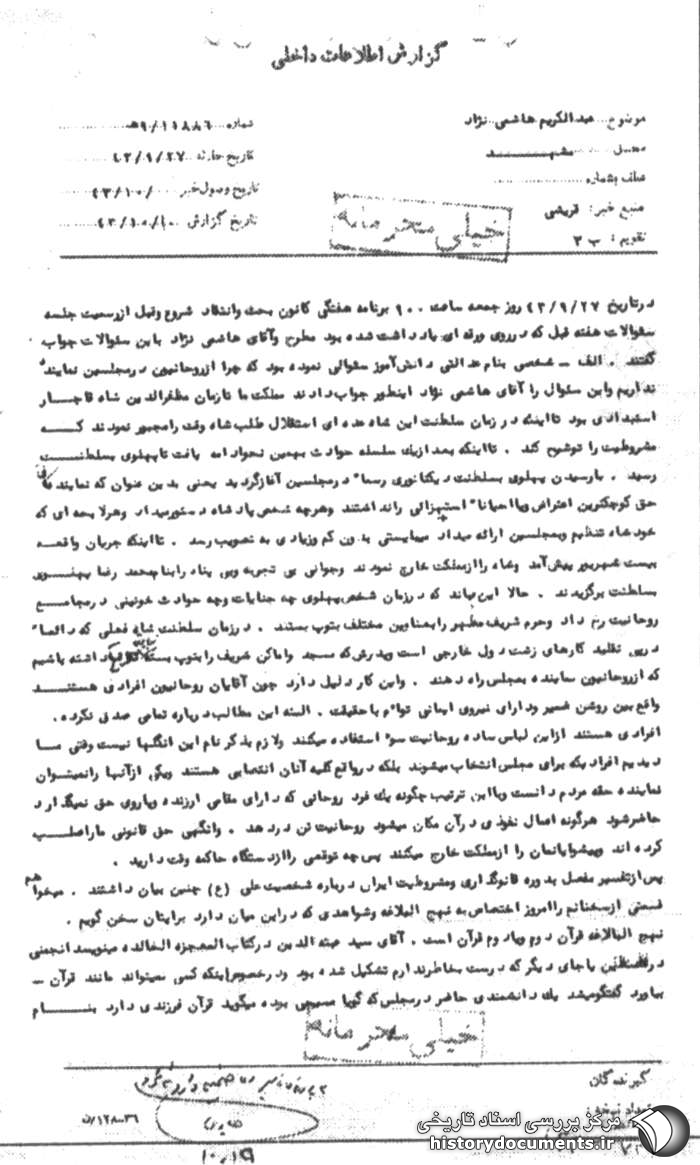 گزارش اطلاعات داخلی
موضوع ... عبدالکریم هاشمی نژاد
شماره ... ۹/۱۱۸۸۶ﻫ
محل ... مشهد
تاریخ حادثه ۴۳/۹/۲۷
عطف بشماره
تاریخ وصول خبر ۴۳/۱۰/
منبع خبر : قریشی
تاریخ گزارش ۴۳/۱۰/۱۰
تقویم : ب ۳
خیلی محرمانه
درتاریخ ۴۳/۹/۲۷ روز جمعه ساعت ۹۰۰ برنامه هفتگی کانون بحث وانتقاد شروع وقبل ازرسمیت جلسه
سئوالات هفته قبل که درروی ورقه ای یادداشت شده بود مطرح وآقای هاشمی نژاد باین سئوالات جواب
گفتند . الف ـ شخصی بنام عدالتی دانش‌آموز سئوالی نموده بود که چرا ازروحانیون درمجلسین نماینده
نداریم واین سئوال را آقای هاشمی نژاد اینطور جواب دادند مملکت ما تازمان مظفرالدین شاه قاجار
استبدادی بود تااینکه در زمان سلطنت این شاه عده ای استقلال طلب شاه وقت رامجبور نمودند که
مشروطیت را توشیح کند . تااینکه بعد ازیک سلسله حوادث بهمین نحوادامه یافت تاپهلوی بسلطنت
رسید . بارسیدن پهلوی بسلطنت دیکتاتوری رسما" درمجلسین آغازگردید یعنی بدین عنوان که نماینده ها
حق کوچکترین اعتراض ویااحیانا" استهزائی رانداشتند وهرچه شخص پادشاه دستورمیداد وهرلایحه ای که
خودشاه تنظیم وبمجلسین ارائه میداد میبایستی بدون کم وزیادی به تصویب رسد . تااینکه جریان واقعه
بیست شهریور پیش‌آمد وشاه راازمملکت خارج نمودند وجوانی بی تجربه وبی پناه رابنام محمد رضا پهلوی
بسلطنت برگزیدند . حالا این بماند که درزمان شخص پهلوی چه جنایات وچه حوادث خونینی درمجامع
روحانیت رخ داد وحرم شریف مطهر رابعناوین مختلف بتوپ بستند . درزمان سلطنت شاه فعلی که دائما"
درپی تقلید کارهای زشت دول خارجی است وپدرش که مسجد واماکن شریف رابتوپ بسته داشته باشیم
که ازروحانیون نماینده بمجلس راه دهند . واین کار دلیل دارد چون آقایان روحانیون افرادی هستند
واقع بین روشن ضمیر ودارای نیروی ایمانی توا"م باحقیقت . البته این مطالب درباره تمامی صدق نکرده .
افرادی هستند ازاین لباس ساده روحانیت سو" استفاده میکنند ولازم بذکر نام این انگلها نیست وقتی ما
دیدیم افرادیکه برای مجلس انتخاب میشوند بلکه درواقع کلیه آنان انتصابی هستند ویکی ازآنها رانمیتوان
نماینده حقه مردم دانست وبااین ترتیب چگونه یک فرد روحانی که دارای مقامی ارزنده وپاروی حق نمیگذارد
حاضرشود هرگونه اعمال نفوذی درآن مکان میشود روحانیت تن دردهد . وانگهی حق قانونی ماراسلب
کرده اند وپیشوایانمان را ازمملکت خارج میکنند پس چه توقعی راازدستگاه حاکمه وقت دارید .
پس ازتفسیر مفصل بدوره قانونگذاری ومشروطیت ایران درباره شخصیت علی (ع) چنین بیان داشتند . میخواهم
قسمتی ازسخنانم راامروز اختصاص به نهج البلاغه وشواهدی که دراین میان دارد برایتان سخن گویم .
نهج البلاغه قرآن دوم ویادوم قرآن است . آقای سید هبته الدین درکتاب المعجزه الخالده مینویسد انجمنی
درفلسطین یاجای دیگر که درست بخاطرندارم تشکیل شده بود ودرخصوص اینکه کسی نمیتواند مانند قرآن ـ
بیاورد گفتگومیشد یک دانشمندی حاضر درمجلس که گویا مسیحی بوده میگوید قرآن فرزندی دارد بنام
خیلی محرمانه
گیرندگان
۳۶-۱۲۸/ن
۱۰/۱۹
مرکز بررسی اسناد تاریخی
historydocuments.ir